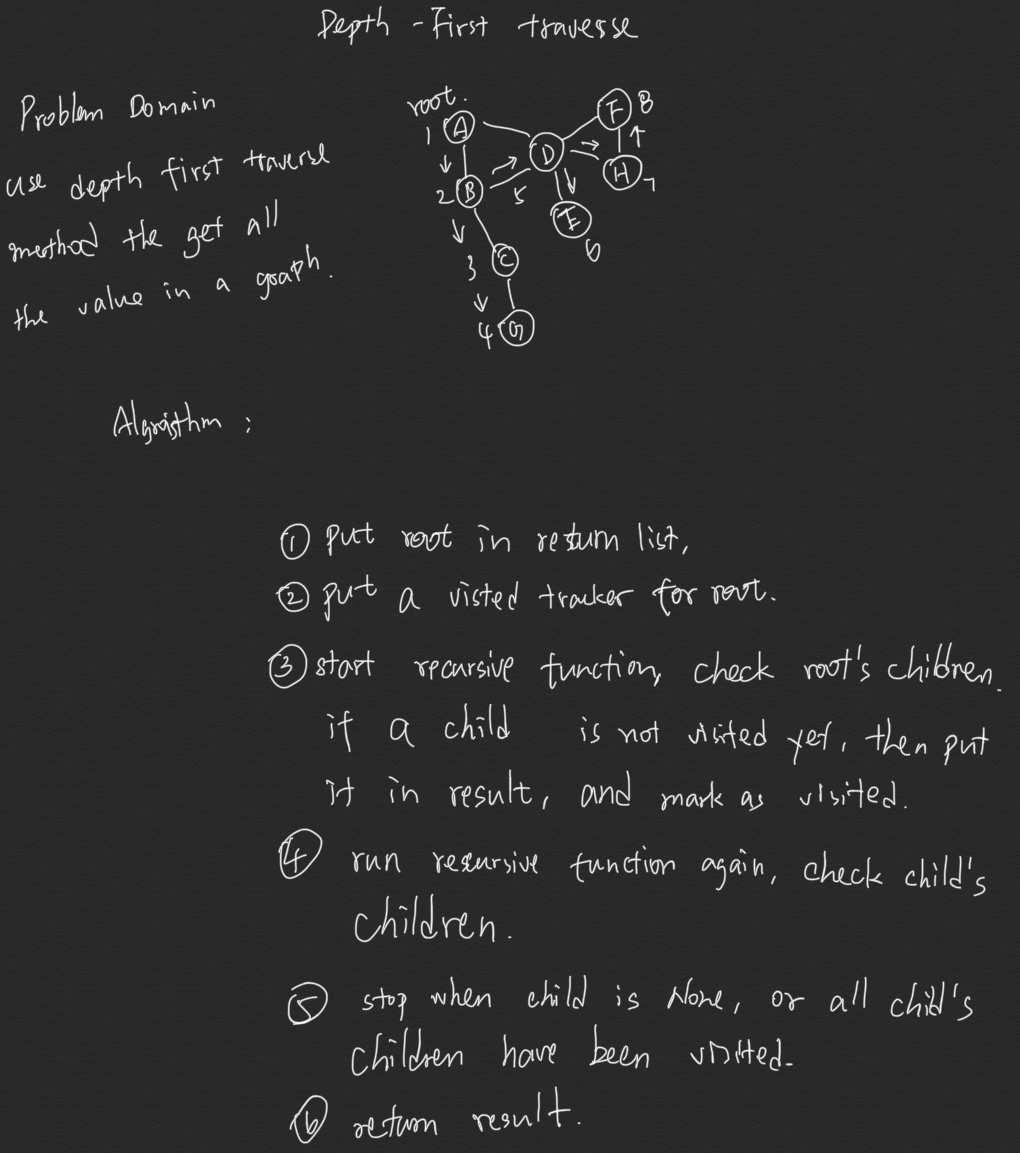 Depth - First travesse
Problem Domain
use depth first traverse
method the get all
the value in a graph.
root.
1 A
F 8
D
2 B
5
H 7
E
6
3 C
4 G
Algorithm :
① put root in return list,
② put a visted tracker for root.
③ start recursive function, check root's children.
if a child is not visited yet, then put
it in result, and mark as visited.
④ run recursive function again, check child's
children.
⑤ stop when child is None, or all child's
children have been visited.
⑥ return result.